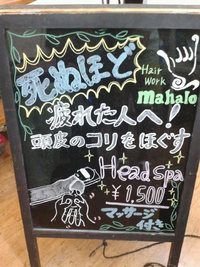 死ぬほど
Hair Work
mahalo
疲れた人へ!
頭皮のコリをほぐす
Head spa
¥1,500
マッサージ
付き